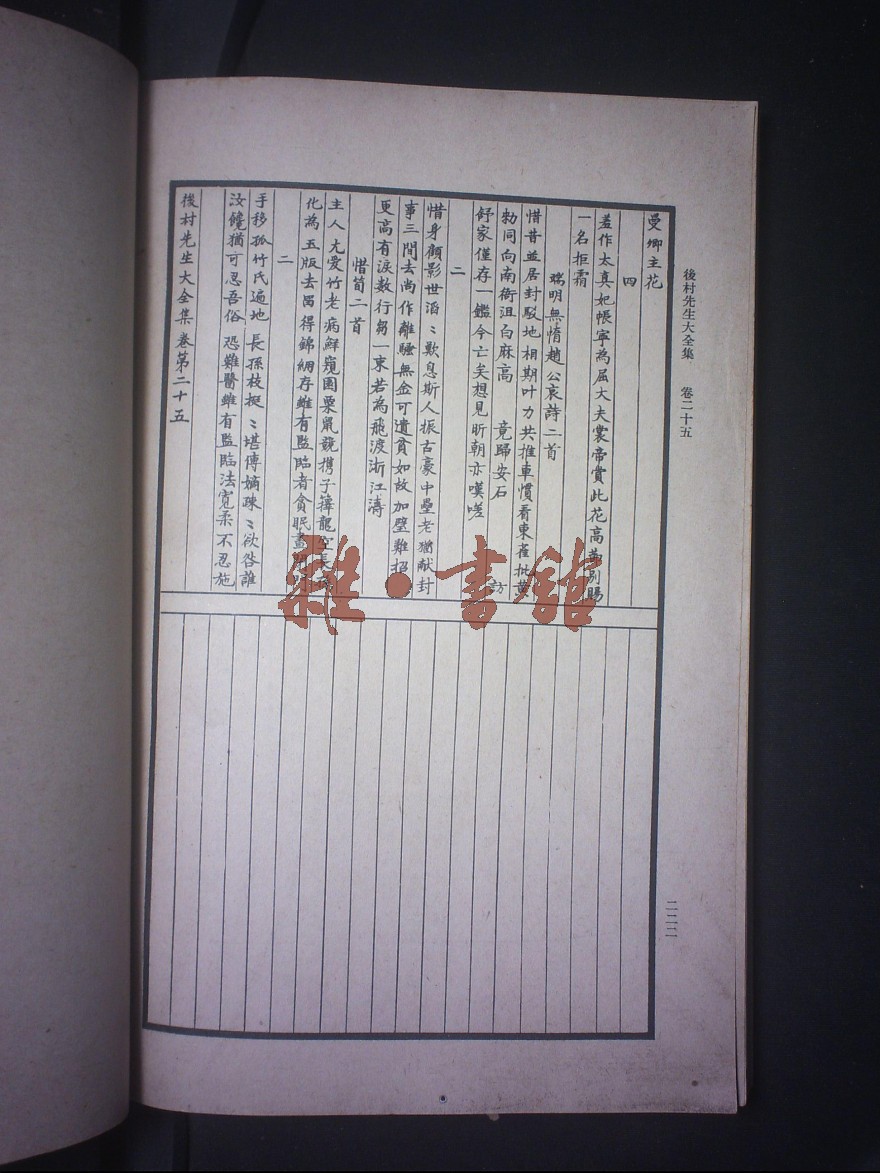 後村先生大全集 卷二十五
曼卿主花
四
羞作太真妃帳寧為屈大夫裳帝賞此花高別賜
一名拒霜
端明無惰趙公哀詩二首
惜昔並居封駁地相期叶力共推車慣看東崔批黃
勑同向南衙沮白麻高 竟歸安石 訪
舒家僅存一鑑今亡矣想見昕朝亦嘆嗟
二
惜身顧影世滔〻歎息斯人振古豪中壘老猶献封
事三閭去尚作離騷無金可遺貧如故加璧難招
更高有淚數行芻一束若為飛渡浙江濤
惜筍二首
主人尤愛竹老病鮮窺園栗鼠競携子籜龍空長
化為五版去留得錦綳存雖有監臨者貪眠晝
二
手移孤竹氏遍地長孫枝挺〻堪傳嫡疎〻欲咎誰
汝饞猶可忍吾俗恐難醫雖有監臨法寬柔不忍施
後村先生大全集卷第二十五
二二二
雜·書館